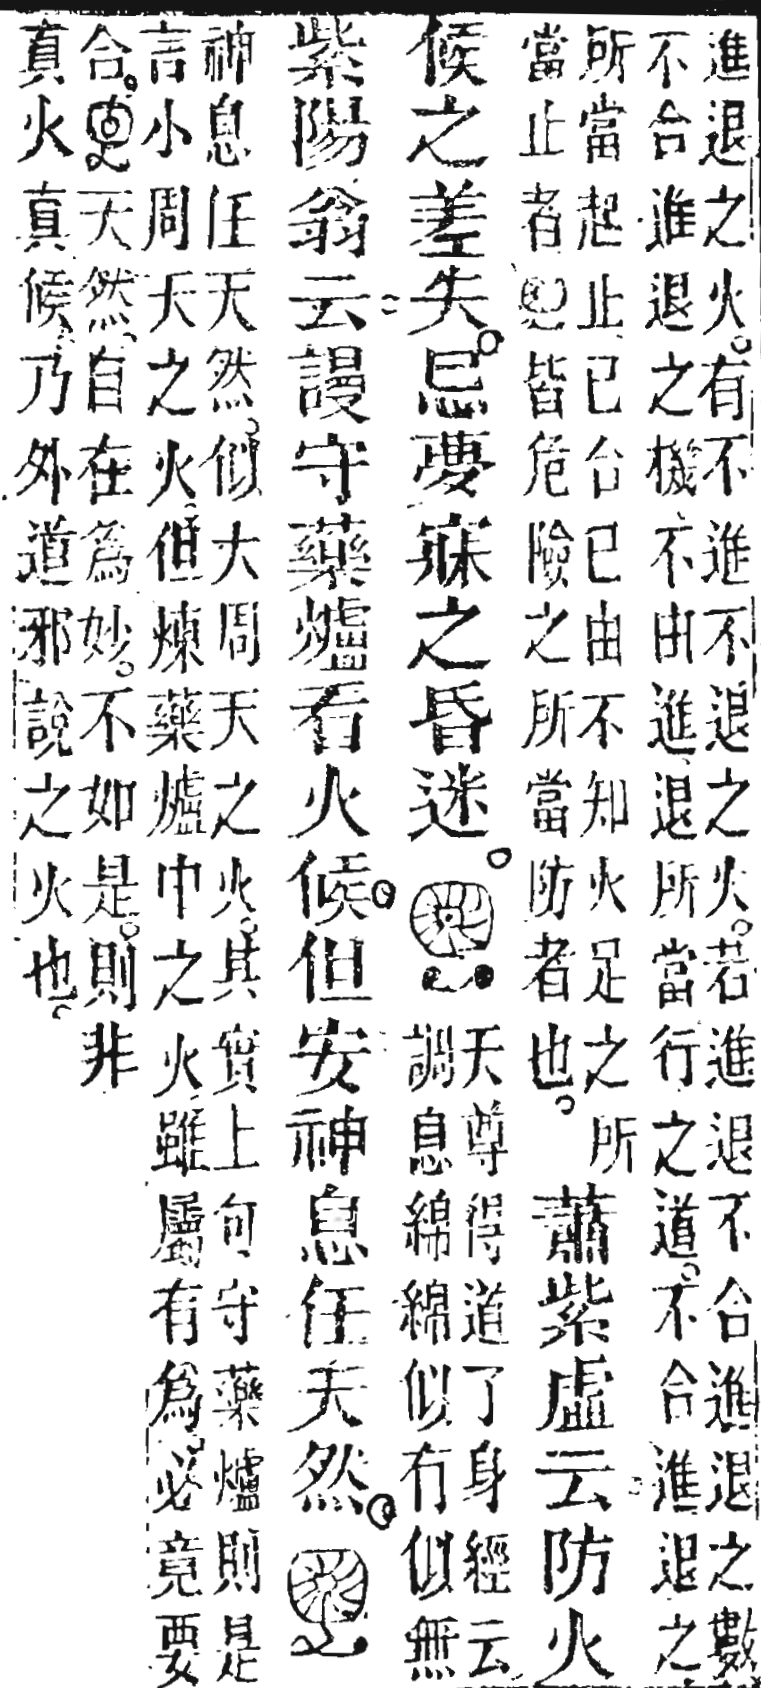 進退之火。有不進不退之火。若進退不合進退之數
不合進退之機不由進退所當行之道。不合進退之
所當起止已合已由不知火足之所
當止者皆危險之所當防者也。
蕭紫虛云防火
候之差失。忌夢寐之昏迷。
天尊得道了身經云
調息綿綿似有似無
紫陽翁云謾守藥爐看火候。但安神息任天然。
神息任天然。似大周天之火。其實上句守藥爐則是
言小周天之火。但煉藥爐中之火雖屬有爲。必竟要
合。天然。自在為妙。不如是。則非
真火真候。乃外道邪說之火也。